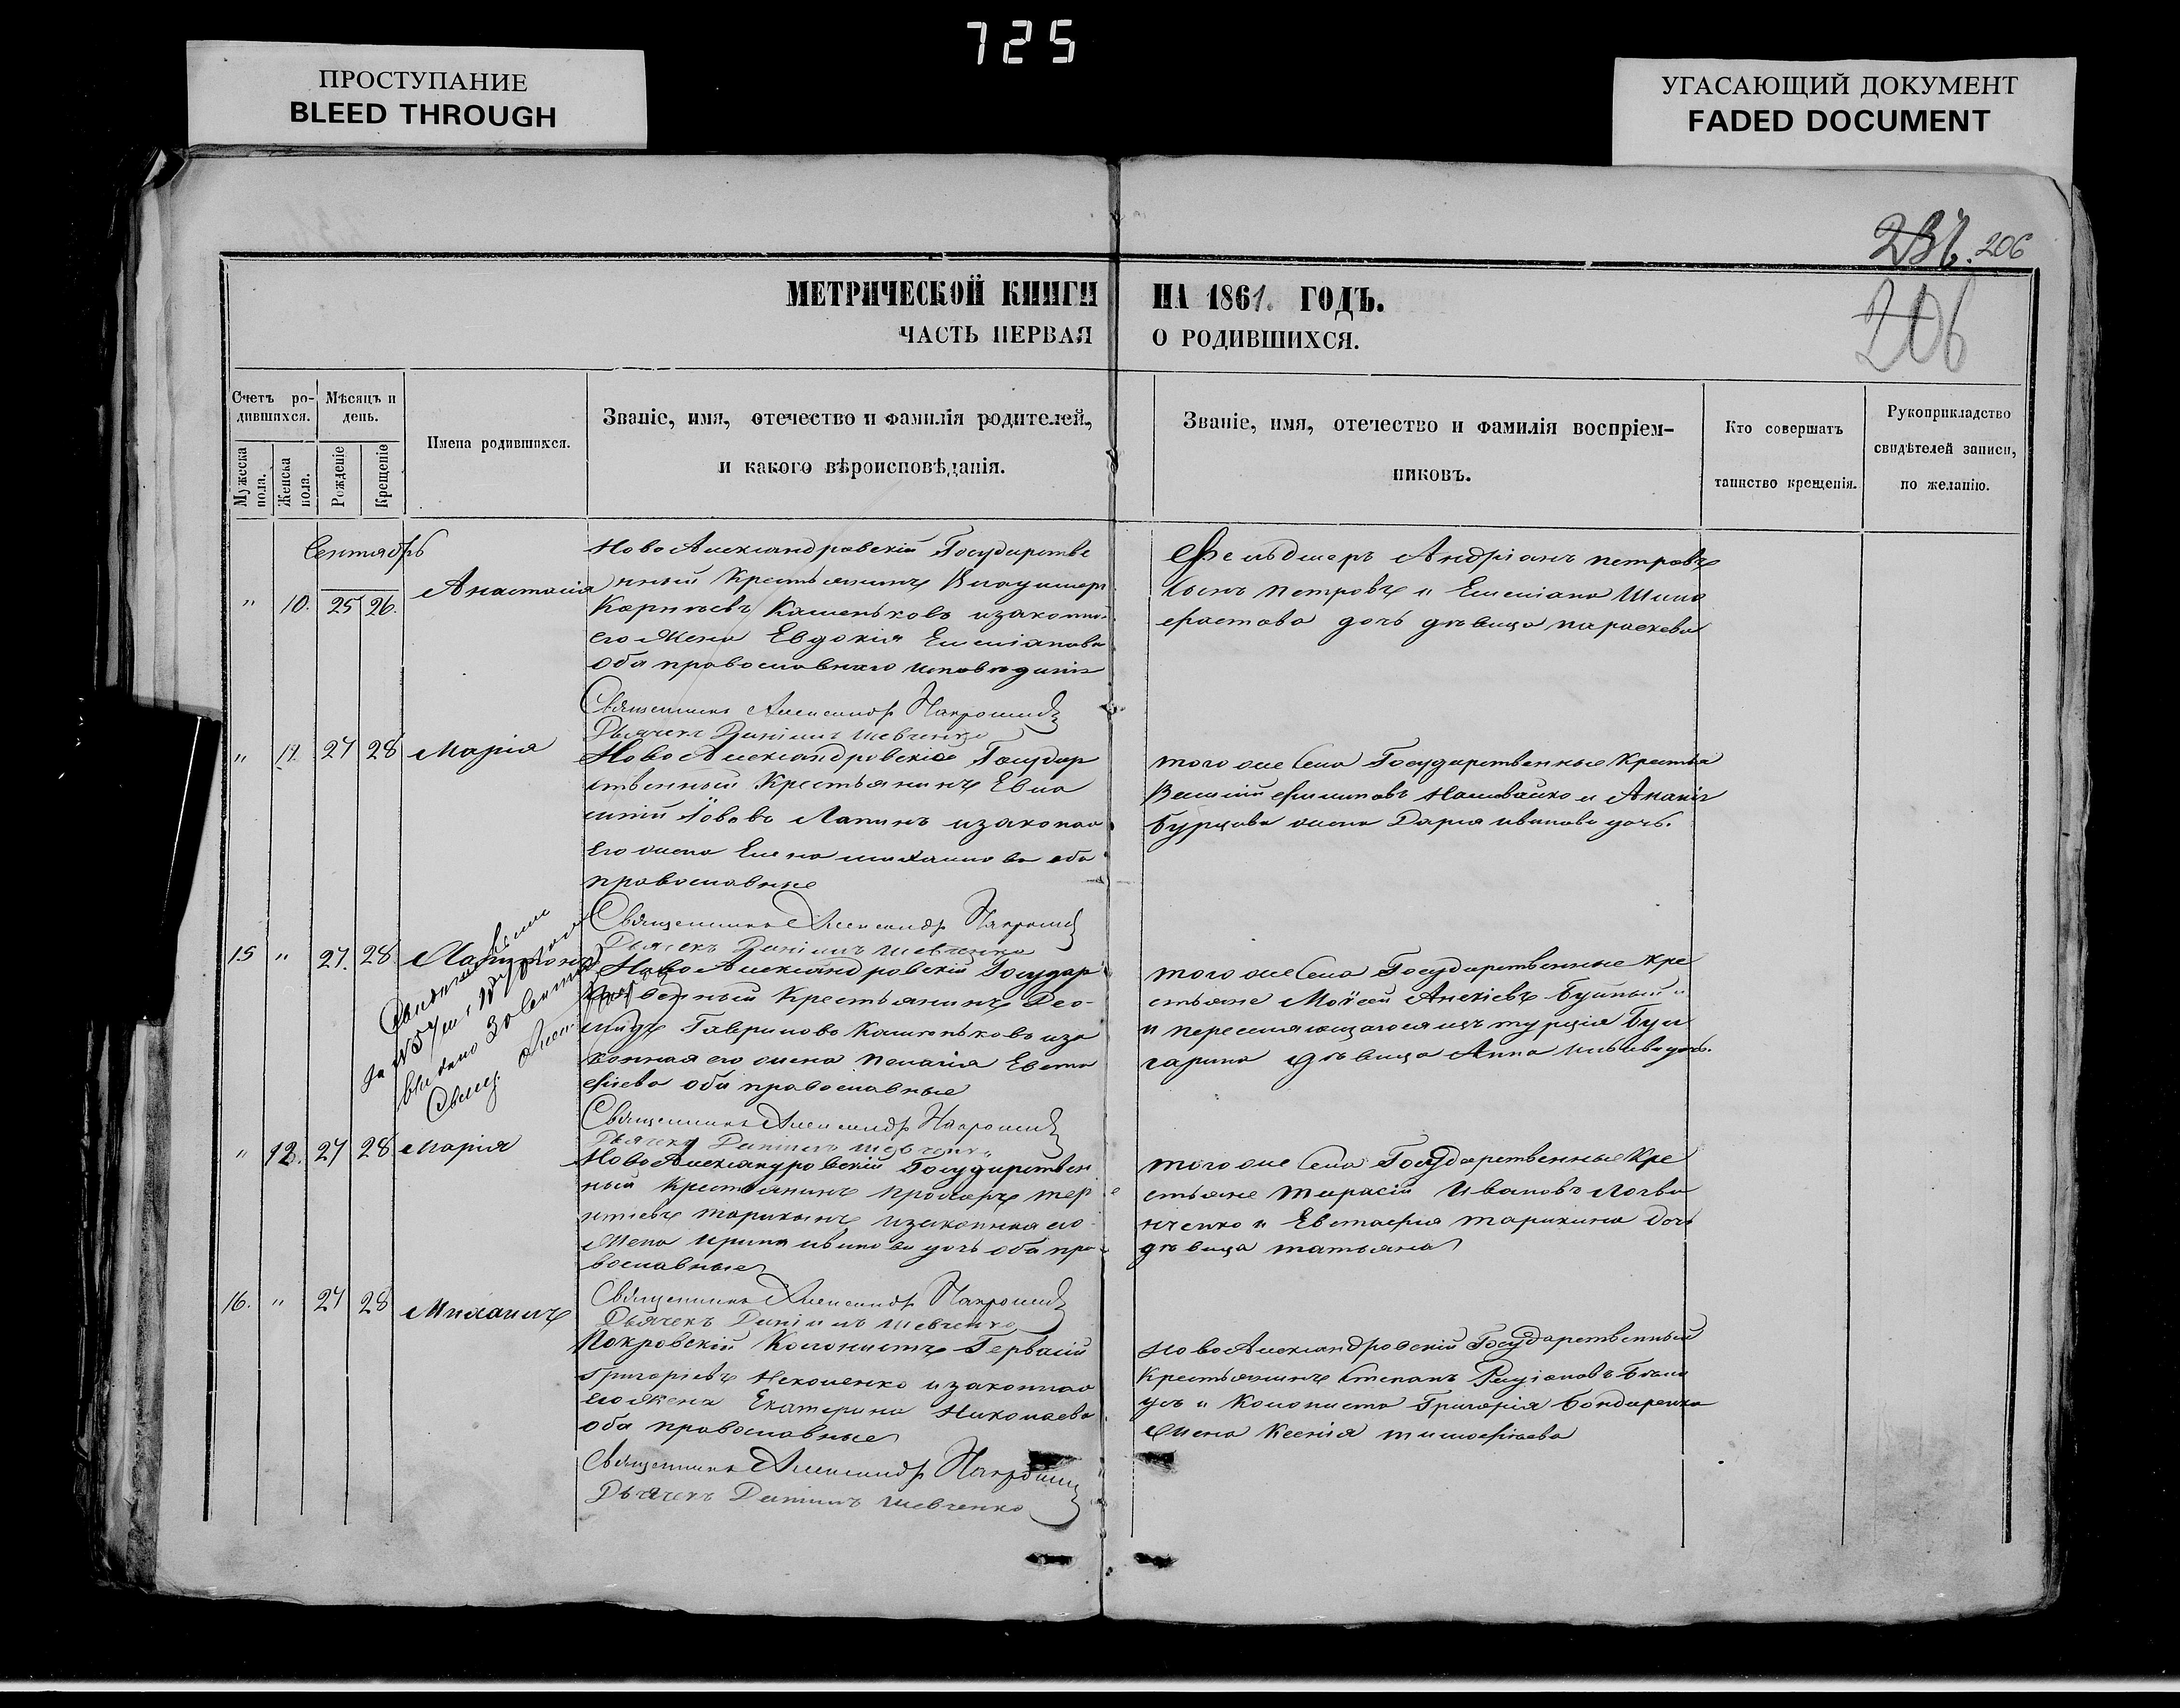 725
ПРОСТУПАНИЕ
BLEED THROUGH
УГАСАЮЩИЙ ДОКУМЕНТ
FADED DOCUMENT
206
206
МЕТРИЧЕСКОЙ КНИГИ НА 1861. ГОДЪ.
ЧАСТЬ ПЕРВАЯ О РОДИВШИХСЯ.
Счетъ ро-
дившихся.
Мужеска
пола.
Женска
пола.
Мѣсяцъ и
день.
Рожденіе
Крещеніе
Имена родившихся.
Званіе, имя, отечество и фамилія родителей,
и какого вѣроисповѣданія.
Званіе, имя, отечество и фамилія воспріем-
никовъ.
Кто совершатъ
таинство крещенія.
Рукоприкладство
свидѣтелей записи,
по желанію.
Сентябрь
" 10. 25 26.
Анастасія
Ново Александровскій Государстве
нный Крестьянинъ
Каменьковъ изаконная
его жена Евдокія Емеліанова
оба православнаго исповѣданія
Священникъ Александръ
Дьячекъ Даніилъ Шевченко
Фельдшеръ Андріанъ петровъ
сынъ петровъ и Емеліана
дочь дѣвица параскева
" 11. 27 28 Марія
Ново Александровскій Государ
ственный Крестьянинъ Евла
мпій Іововъ Лапинъ изаконная
его жена Елена михаилова оба
православные
Священникъ Александръ
Дьячекъ Даніилъ Шевченко
того же Села Государственные Крестья
Василій Филиповъ и
Бурцова жена Дарія иванова дочь.
15 " 27. 28.
Свидѣтельство
за № 57
выдано
Свящ.
Ново Александровскій Государ
ственный Крестьянинъ Лео-
нидъ Гавриловъ Каменьковъ иза
конная его жена пелагія Евста
фіева оба православные
Священникъ Александръ
Дьячекъ Даніилъ Шевченко
того же Села Государственные Кре
стьяне Моѵсей Алексіевъ
и переселяющагося изъ турціи Бул
гарина дѣвица Анна дочь.
" 12. 27 28 Марія
Ново Александровскій Государствен
ный Крестьянинъ прохоръ тер
ентіевъ тарикинъ изаконная его
жена ирина иванова дочь оба пра
вославные
Священникъ Александръ
Дьячекъ Даніилъ Шевченко
того же Села Государственные Кре
стьяне тарасій Ивановъ Логви
ненко и Евстафія тарикина дочь
дѣвица татьяна
16. " 27 28 Михаилъ
Покровскій Колонистъ Гервасій
Григоріевъ изаконная
его жена Екатерина Николаева
оба православные
Священникъ Александръ
Дьячекъ Даніилъ Шевченко
Ново Александровскій Государственный
Крестьянинъ Степанъ Родіоновъ
и Колониста Григорія Бондаренка
жена Ксенія тимофеева